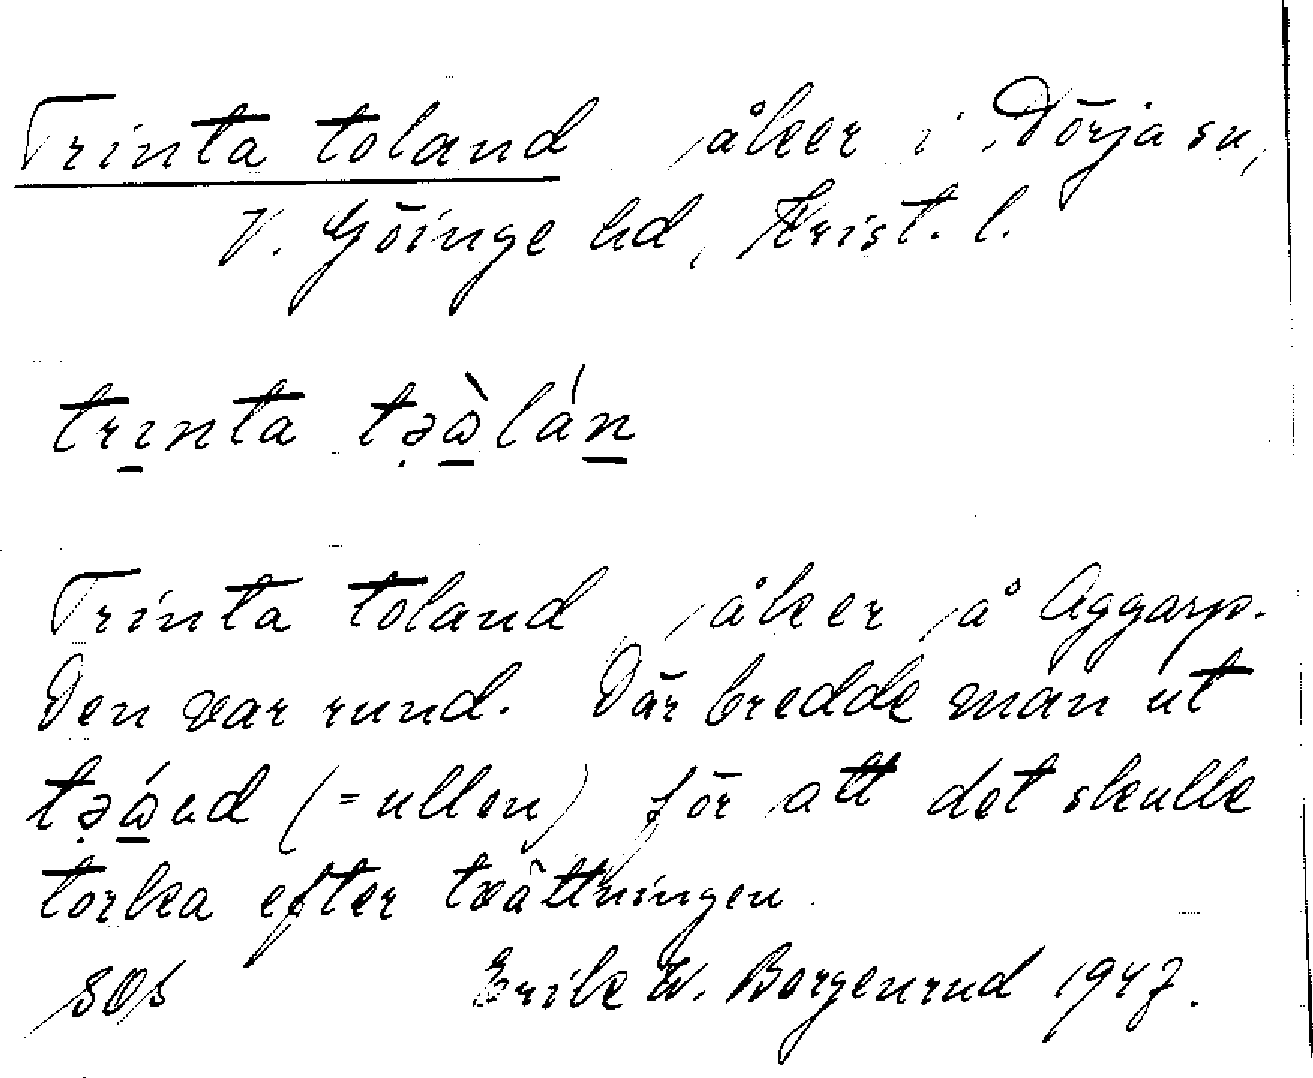 Trinta toland, åker i Dörja sn,
V. Göinge hd, Krist. l.
trı̱nta tə̣ὼ̱láṉ
Trinta toland, åker å Aggarp.
Den var rund. Där bredde man ut
(= ullen) för att det skulle
torka efter tvättningen.
Erik W. Borgenrud 1947.